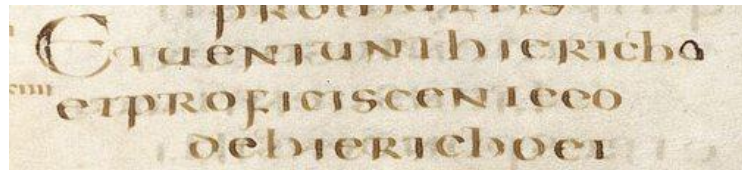 promultis
Etueniunthiericho
etproficiscenteeo
dehierichoet